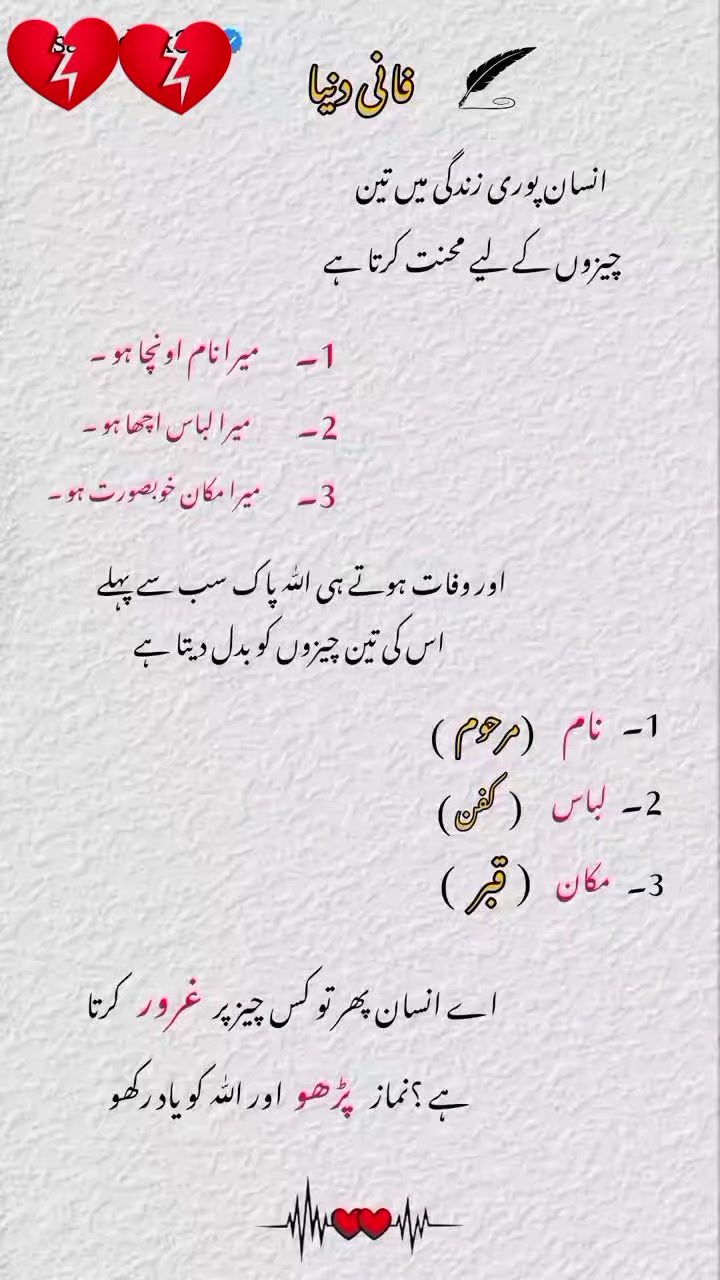 فانی دنیا
انسان پوری زندگی میں تین
چیزوں کے لیے محنت کرتا ہے
1۔ میرا نام اونچا ہو۔
2۔ میرا لباس اچھا ہو۔
3۔ میرا مکان خوبصورت ہو۔
اور وفات ہوتے ہی اللہ پاک سب سے پہلے
اس کی تین چیزوں کو بدل دیتا ہے
1۔ نام (مرحوم)
2۔ لباس (کفن)
3۔ مکان (قبر)
اے انسان پھر تو کس چیز پر غرور کرتا
ہے ؟نماز پڑھو اور اللہ کو یاد رکھو